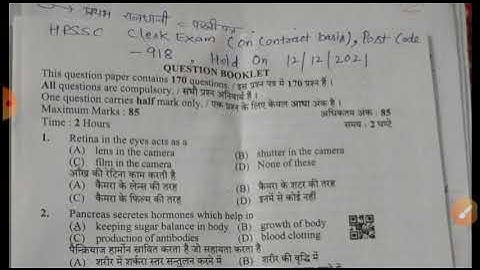 → प्रथम राजधानी =
HPSSC Clerk Exam (on contract basis), Post Code
-918, Held On 12/12/2021
QUESTION BOOKLET
This question paper contains 170 questions. / इस प्रश्न पत्र में 170 प्रश्न हैं ।
All questions are compulsory. / सभी प्रश्न अनिवार्य हैं ।
One question carries half mark only. / एक प्रश्न के लिए केवल आधा अंक है ।
Maximum Marks : 85 अधिकतम अंक : 85
Time : 2 Hours समय : 2 घण्टे
1. Retina in the eyes acts as a
(A) lens in the camera (B) shutter in the camera
(C) film in the camera (D) None of these
आँख की रेटिना काम करती है
(A) कैमरा के लेन्स की तरह (B) कैमरा के शटर की तरह
(C) कैमरा के फिल्म की तरह (D) इनमें से कोई नहीं
2. Pancreas secretes hormones which help in
(A) keeping sugar balance in body (B) growth of body
(C) production of antibodies (D) blood clotting
पैन्क्रियाज हार्मोन स्रावित करता है जो सहायता करता है
(A) शरीर में शर्करा स्तर सन्तुलन करने में (B) शरीर की वृद्धि में